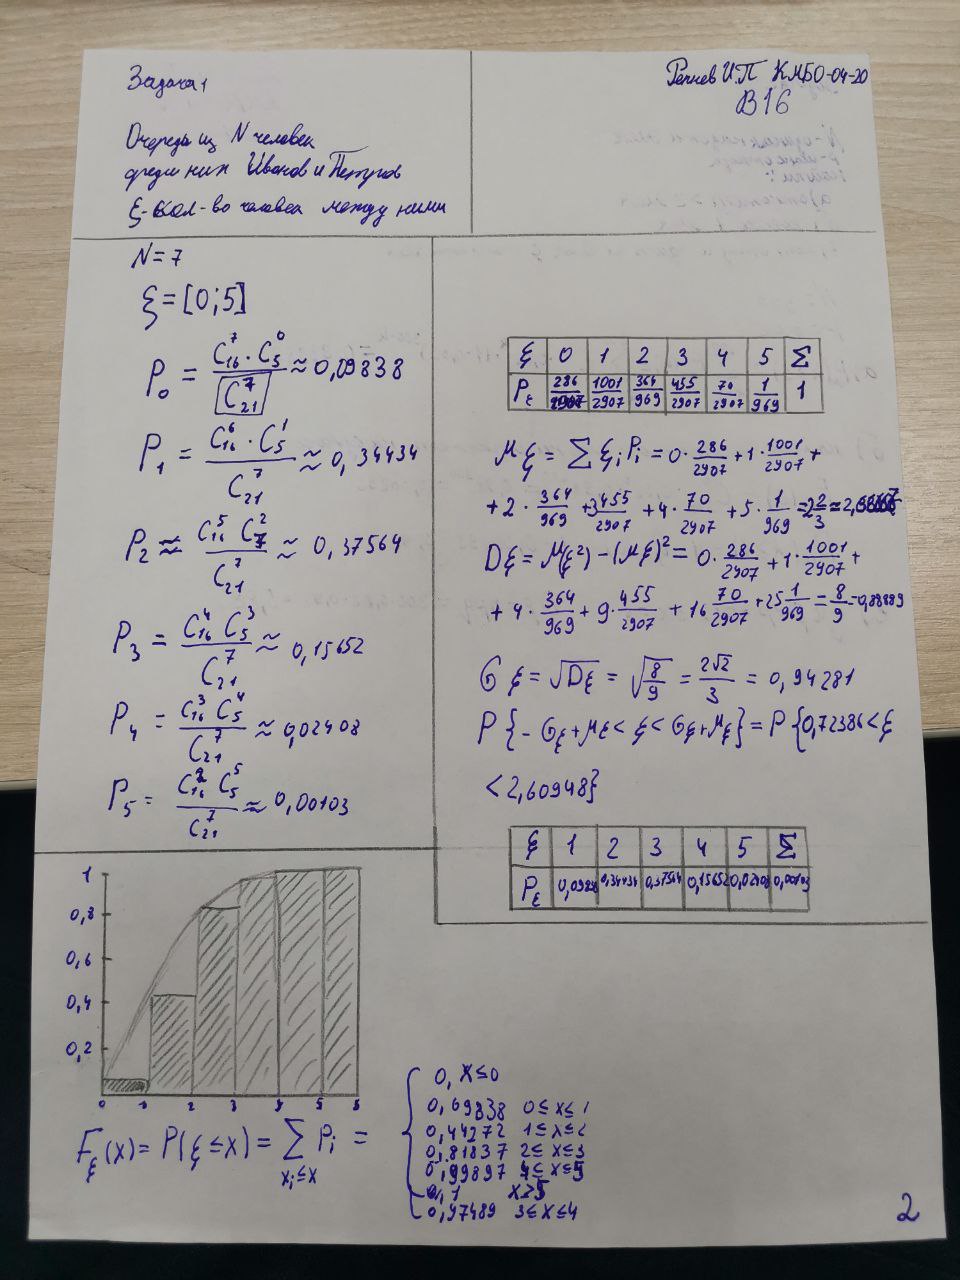 Задача 1
Репнев И.П КМБО-04-20
В16
Очередь из N человек
среди них Иванов и Петров
ξ-кол-во человек между ними
N=7
ξ=[0;5]
P₀ = C₁₆⁷·C₅⁰ / C₂₁⁷ ≈ 0,09838
P₁ = C₁₆⁶·C₅¹ / C₂₁⁷ ≈ 0,34434
P₂ ≈ C₁₆⁵ C₇² / C₂₁⁷ ≈ 0,37564
P₃ = C₁₆⁴ C₅³ / C₂₁⁷ ≈ 0,15652
P₄ = C₁₆³ C₅⁴ / C₂₁⁷ ≈ 0,02408
P₅ = C₁₆² C₅⁵ / C₂₁⁷ ≈ 0,00103
ξ 0 1 2 3 4 5 Σ
Pξ 286/2907 1001/2907 364/969 455/2907 70/2907 1/969 1
Mξ = Σ ξᵢ Pᵢ = 0·286/2907 + 1·1001/2907 +
+ 2·364/969 + 3455/2907 + 4·70/2907 + 5·1/969 =
Dξ = M(ξ²) – (Mξ)² = 0·286/2907 + 1·1001/2907 +
+ 4·364/969 + 9·455/2907 + 16 70/2907 + 25 1/969 = 8/9 = 0,88889
σξ = √Dξ = √8/9 = 2√2/3 = 0,94281
P{-σξ+Mξ < ξ < σξ+Mξ} = P{0,72386 < ξ
< 2,60948}
ξ 1 2 3 4 5 Σ
Pξ 0,0983 0,34434 0,37564 0,15652 0,02408 0,00103
1
0,8
0,6
0,4
0,2
0 1 2 3 4 5
Fξ(x) = P(ξ ≤ x) = Σ Pᵢ =
xᵢ≤x
0, x≤0
0,09838 0≤x≤1
0,44272 1≤x≤2
0,81837 2≤x≤3
0,99897 4≤x≤5
1 x>5
0,97489 3≤x≤4
2